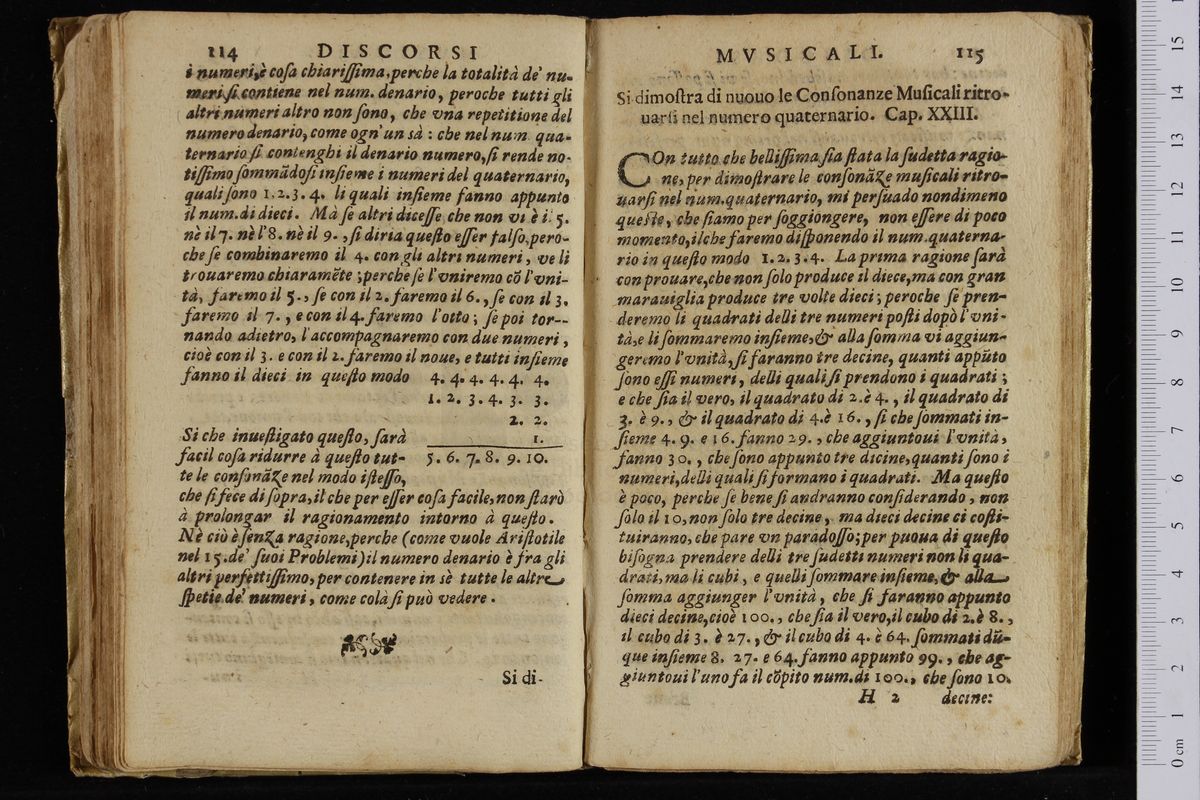 114 DISCORSI
i numeri, è coſa chiariſſima, perche la totalità de' nu-
meri ſi contiene nel num. denario, peroche tutti gli
altri numeri altro non ſono, che vna repetitione del
numero denario, come ogn'un sà : che nel num. qua-
ternario ſi contenghi il denario numero, ſi rende no-
tiſſimo ſommādoſi inſieme i numeri del quaternario,
quali ſono 1. 2. 3. 4. li quali inſieme fanno appunto
il num. di dieci. Mà ſe altri diceſſe che non vi è il 5.
nè il 7. nè l'8. nè il 9. , ſi diria queſto eſſer falſo, pero-
che ſe combinaremo il 4. con gli altri numeri, ve li
trouaremo chiaramēte ; perche ſe l'vniremo cō l'vni-
tà, faremo il 5. , ſe con il 2. faremo il 6. , ſe con il 3.
faremo il 7. , e con il 4. faremo l'otto ; ſe poi tor--
nando adietro, l'accompagnaremo con due numeri ,
cioè con il 3. e con il 2. faremo il noue, e tutti inſieme
fanno il dieci in queſto modo 4. 4. 4. 4. 4. 4.
1. 2. 3. 4. 3. 3.
2. 2.
Si che inueſtigato queſto, ſarà 1.
facil coſa ridurre à queſto tut- 5. 6. 7. 8. 9. 10.
te le conſonāze nel modo iſteſſo,
che ſi fece di ſopra, il che per eſſer coſa facile, non ſtarò
à prolongar il ragionamento intorno à queſto.
Nè ciò è ſenza ragione, perche (come vuole Ariſtotile
nel 15. de' ſuoi Problemi) il numero denario è fra gli
altri perfettiſſimo, per contenere in sè tutte le altre
ſpetie de' numeri, come colà ſi può vedere .
Si di-
MVSICALI. 115
Si dimoſtra di nuouo le Conſonanze Muſicali ritro-
uarſi nel numero quaternario. Cap. XXIII.
COn tutto che belliſſima ſia ſtata la ſudetta ragio-
ne, per dimoſtrare le conſonāze muſicali ritro-
uarſi nel num. quaternario, mi perſuado nondimeno
queſte, che ſiamo per ſoggiongere, non eſſere di poco
momento, ilche faremo diſponendo il num. quaterna-
rio in queſto modo 1. 2. 3. 4. La prima ragione ſarà
con prouare, che non ſolo produce il diece, ma con gran
marauiglia produce tre volte dieci ; peroche ſe pren-
deremo li quadrati delli tre numeri poſti dopò l'vni-
tà, e li ſommaremo inſieme, & alla ſomma vi aggiun-
geremo l'vnità, ſi faranno tre decine, quanti appūto
ſono eſſi numeri, delli quali ſi prendono i quadrati ;
e che ſia il vero, il quadrato di 2. è 4. , il quadrato di
3. è 9. , & il quadrato di 4. è 16. , ſi che ſommati in-
ſieme 4. 9. e 16. fanno 29. , che aggiuntoui l'vnità,
fanno 30. , che ſono appunto tre dicine, quanti ſono i
numeri, delli quali ſi formano i quadrati. Ma queſto
è poco, perche ſe bene ſi andranno conſiderando , non
ſolo il 10, non ſolo tre decine, ma dieci decine ci coſti-
tuiranno, che pare vn paradoſſo; per puoua di queſto
biſogna prendere delli tre ſudetti numeri non li qua-
drati, ma li cubi, e quelli ſommare inſieme, & alla
ſomma aggiunger l'vnità, che ſi faranno appunto
dieci decine, cioè 100. , che ſia il vero, il cubo di 2. è 8. ,
il cubo di 3. è 27. , & il cubo di 4. è 64. ſommati dū-
que inſieme 8. 27. e 64. fanno appunto 99. , che ag-
giuntoui l'uno fa il cōpito num. di 100., che ſono 10.
H 2 decine: